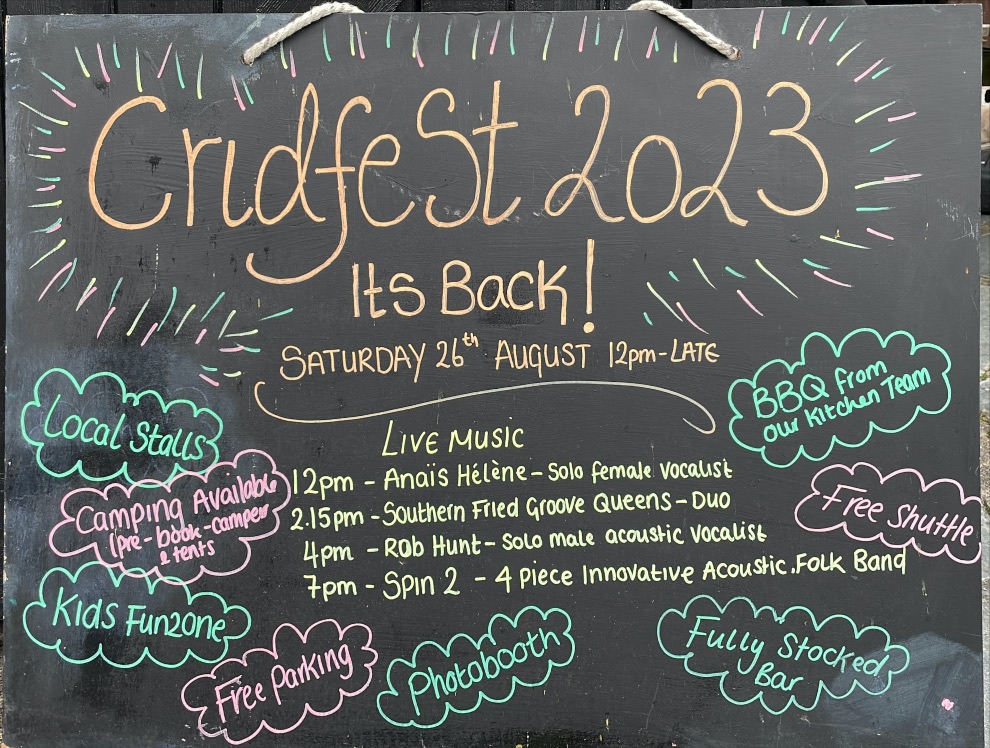 Cridfest 2023
Its Back!
SATURDAY 26th AUGUST 12pm-LATE
BBQ from
our Kitchen Team
Local Stalls
LIVE MUSIC
12pm - Anaïs Hélène - Solo female vocalist
2.15pm - Southern Fried Groove Queens - Duo
4pm - Rob Hunt - Solo male acoustic vocalist
7pm - Spin 2 - 4 piece Innovative Acoustic.Folk Band
Camping Available
(pre-book-camper
& tents
Free Shuttle
Kids Funzone
Free Parking
Photobooth
Fully Stocked
Bar